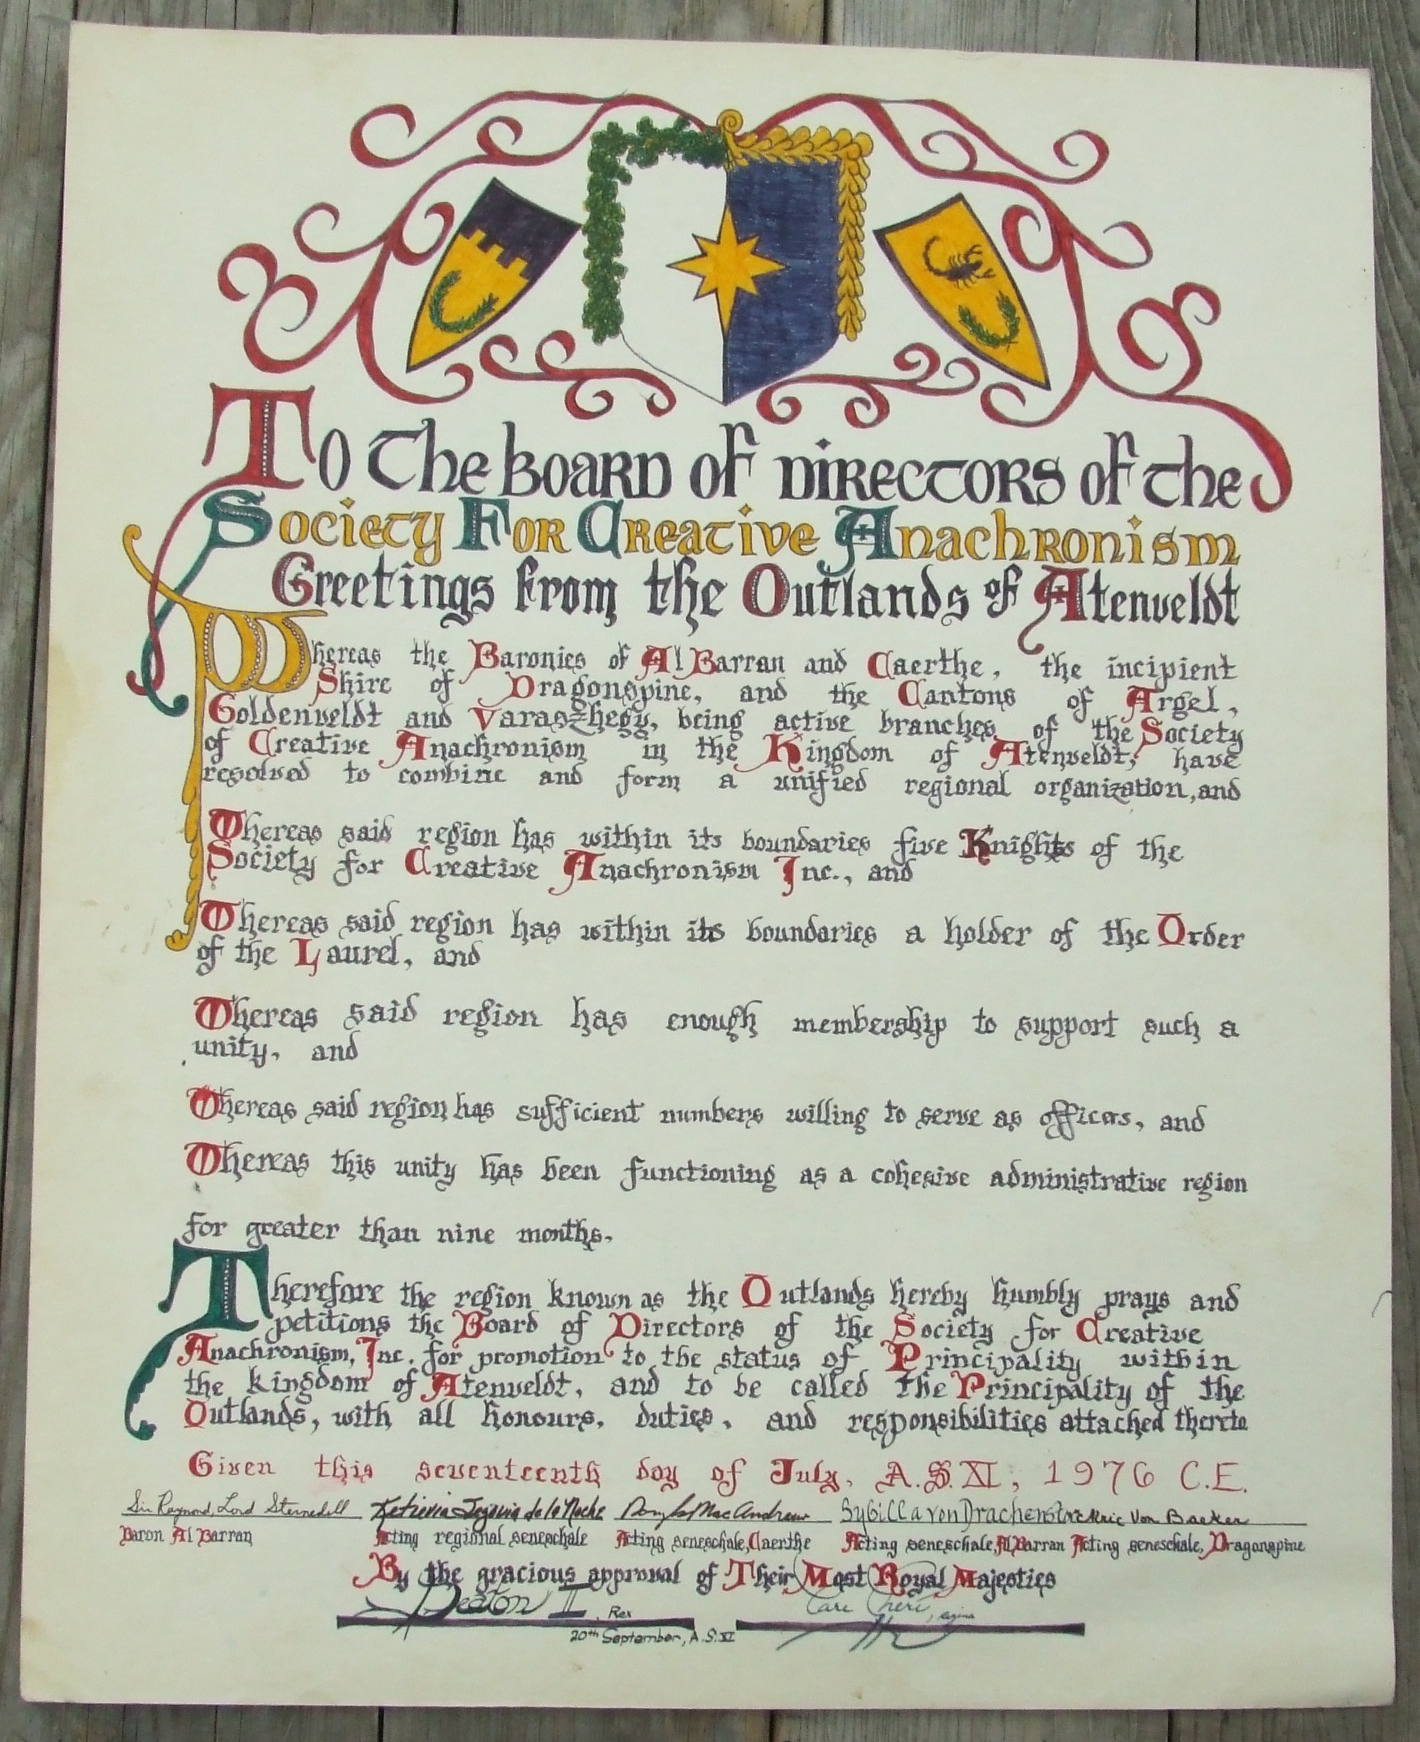 To The Board of Directors of the
Society For Creative Anachronism
Greetings from the Outlands of Atenveldt
Whereas the Baronies of Al Barran and Caerthe, the incipient
Shire of Dragonspine, and the Cantons of Argel,
Goldenveldt and Varaszhegy, being active branches of the Society
of Creative Anachronism in the Kingdom of Atenveldt, have
resolved to combine and form a unified regional organization, and
Whereas said region has within its boundaries five Knights of the
Society for Creative Anachronism Inc., and
Whereas said region has within its boundaries a holder of the Order
of the Laurel, and
Whereas said region has enough membership to support such a
unity, and
Whereas said region has sufficient numbers willing to serve as officers, and
Whereas this unity has been functioning as a cohesive administrative region
for greater than nine months.
Therefore the region known as the Outlands hereby humbly prays and
petitions the Board of Directors of the Society for Creative
Anachronism, Inc. for promotion to the status of Principality within
the kingdom of Atenveldt, and to be called the Principality of the
Outlands, with all honours, duties, and responsibilities attached thereto
Given this seventeenth day of July, A.S. XI, 1976 C.E.
Sir Raymond, Lord Sternedell de la Noche MacAndrew Sybilla von Drachenstre Von Baeker
Baron Al Barran Acting regional seneschale Acting seneschale, Caerthe Acting seneschale, Al Barran Acting seneschale, Dragonspine
By the gracious approval of Their Most Royal Majesties
Deaton II, Rex
20th September, A.S. XI